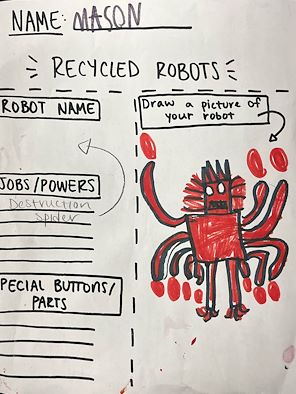 NAME: MASON
RECYCLED ROBOTS
ROBOT NAME
JOBS/POWERS
Destruction
Spider
PECIAL BUTTONS/
PARTS
Draw a picture of
your robot